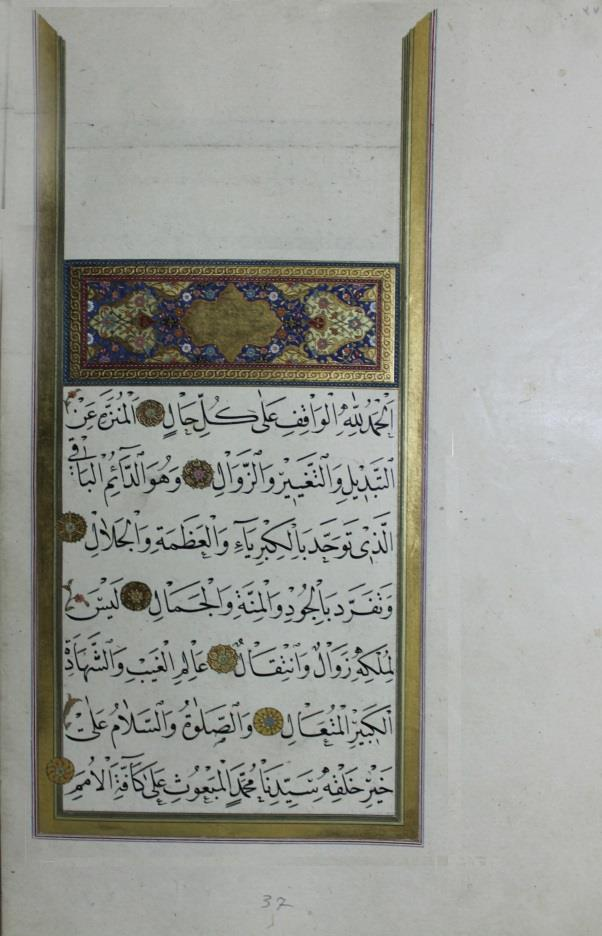 اَلْحَمْدُ لِلّٰهِ الْوَاقِفِ عَلٰى كُلِّ حَالٍ اَلْمُنَزَّهِ عَنِ
التَّبْدِيلِ وَالتَّغْيِيرِ وَالزَّوَالِ وَهُوَ الدَّآئِمُ الْبَاقِي
الَّذِي تَوَحَّدَ بِالْكِبْرِيَآءِ وَالْعَظَمَةِ وَالْجَلَالِ
وَتَفَرَّدَ بِالْجُودِ وَالْمِنَّةِ وَالْجَمَالِ لَيْسَ
لِمُلْكِهِ زَوَالٌ وَانْتِقَالٌ عَالِمِ الْغَيْبِ وَالشَّهَادَةِ
الْكَبِيرِ الْمُتَعَالِ وَالصَّلٰوةُ وَالسَّلَامُ عَلٰى
خَيْرِ خَلْقِهِ سَيِّدِنَا مُحَمَّدٍ الْمَبْعُوثِ عَلٰى كَآفَّةِ الْاُمَمِ
37